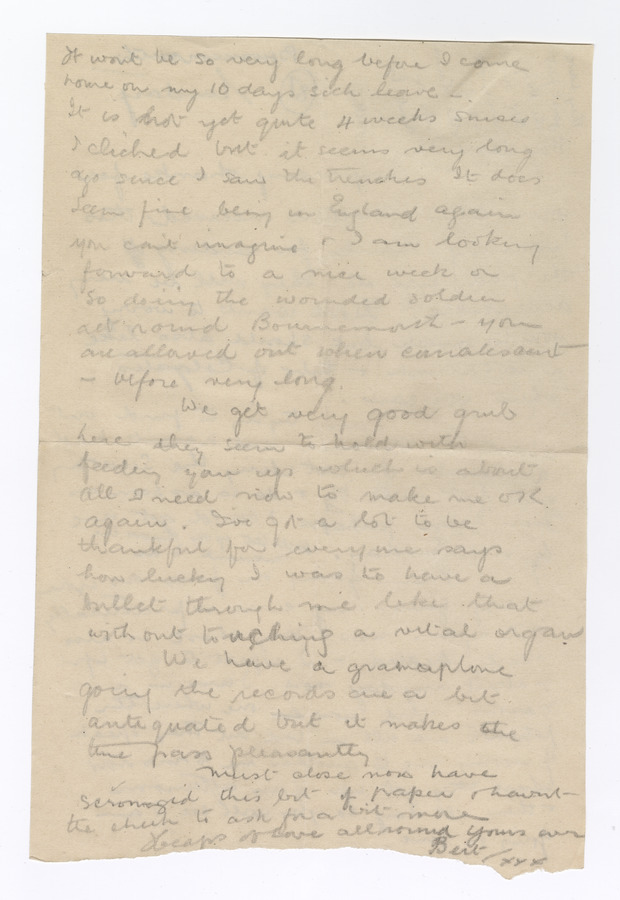 It wont be so very long before I come
home on my 10 days sick leave –
It is not yet quite 4 weeks since
I clicked but it seems very long
ago since I saw the trenches It does
seem fine being in England again
you cant imagine & I am looking
forward to a nice week or
so doing the wounded soldier
act round Bournemouth – you
are allowed out when
– before very long.
We get very good grub
here they seem to hold with
feeding you up which is about
all I need now to make me OK
again. I've got a lot to be
thankful for everyone says
how lucky I was to have a
bullet through me like that
without touching a vital organ
We have a gramaphone
going the records are a bit
antiquated but it makes the
time pass pleasantly
Must close now have
this bit of paper & havnt
the cheek to ask for a bit more
Heaps of love all round yours ever
Bert / xxx